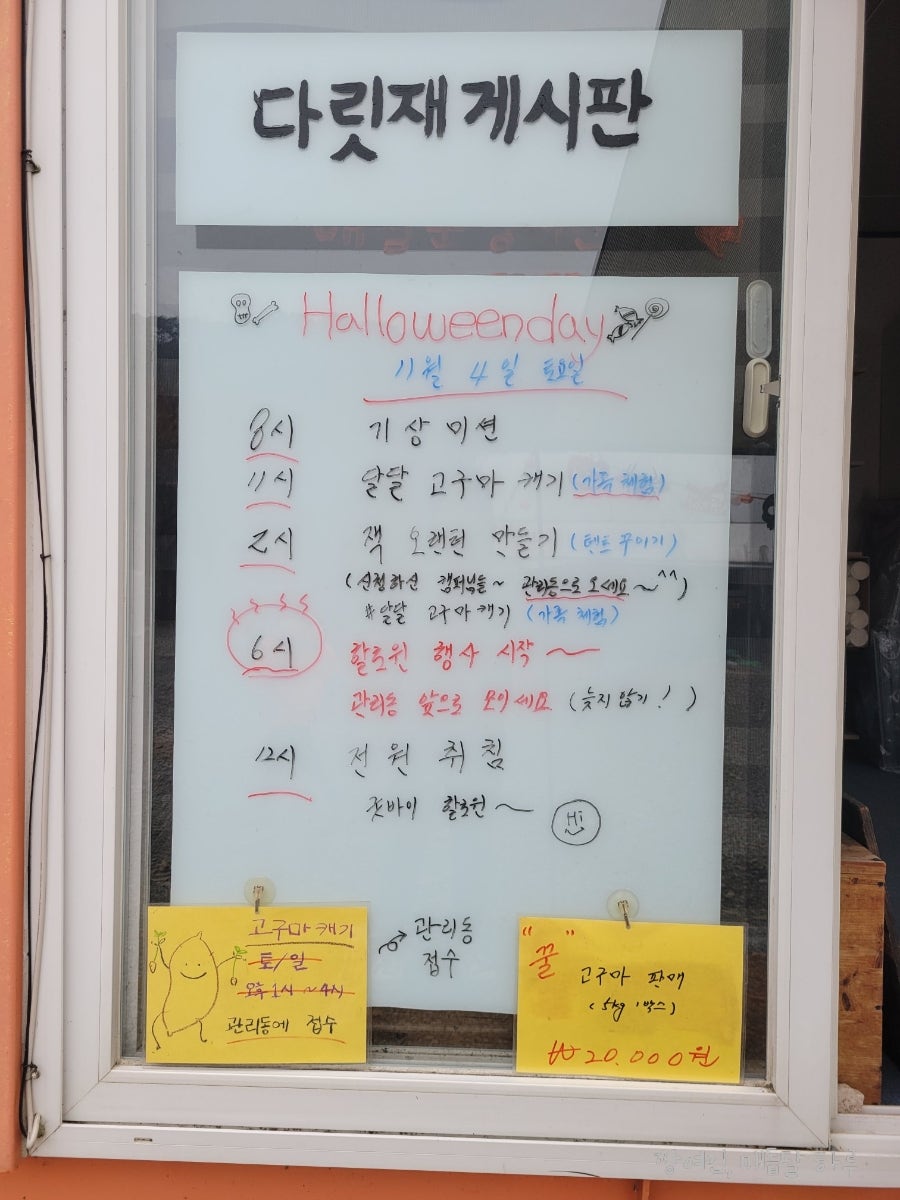 다릿재 게시판
Halloweenday
11월 4일 토요일
8시 기상미션
11시 달달 고구마 캐기 (가족 체험)
2시 잭 오랜턴 만들기 (텐트 꾸미기)
(신청하신 캠퍼님들~ 관리동으로 오세요~^^)
#달달 고구마 캐기 (가족 체험)
6시 할로윈 행사 시작~
관리동 앞으로 모이세요 (늦지 않기!)
12시 전원 취침
굿바이 할로윈~
Hi
고구마 캐기
토/일
오후 1시 ~ 4시
관리동에 접수
관리동
접수
"꿀"
고구마 판매
(5kg 1박스)
₩20.000원